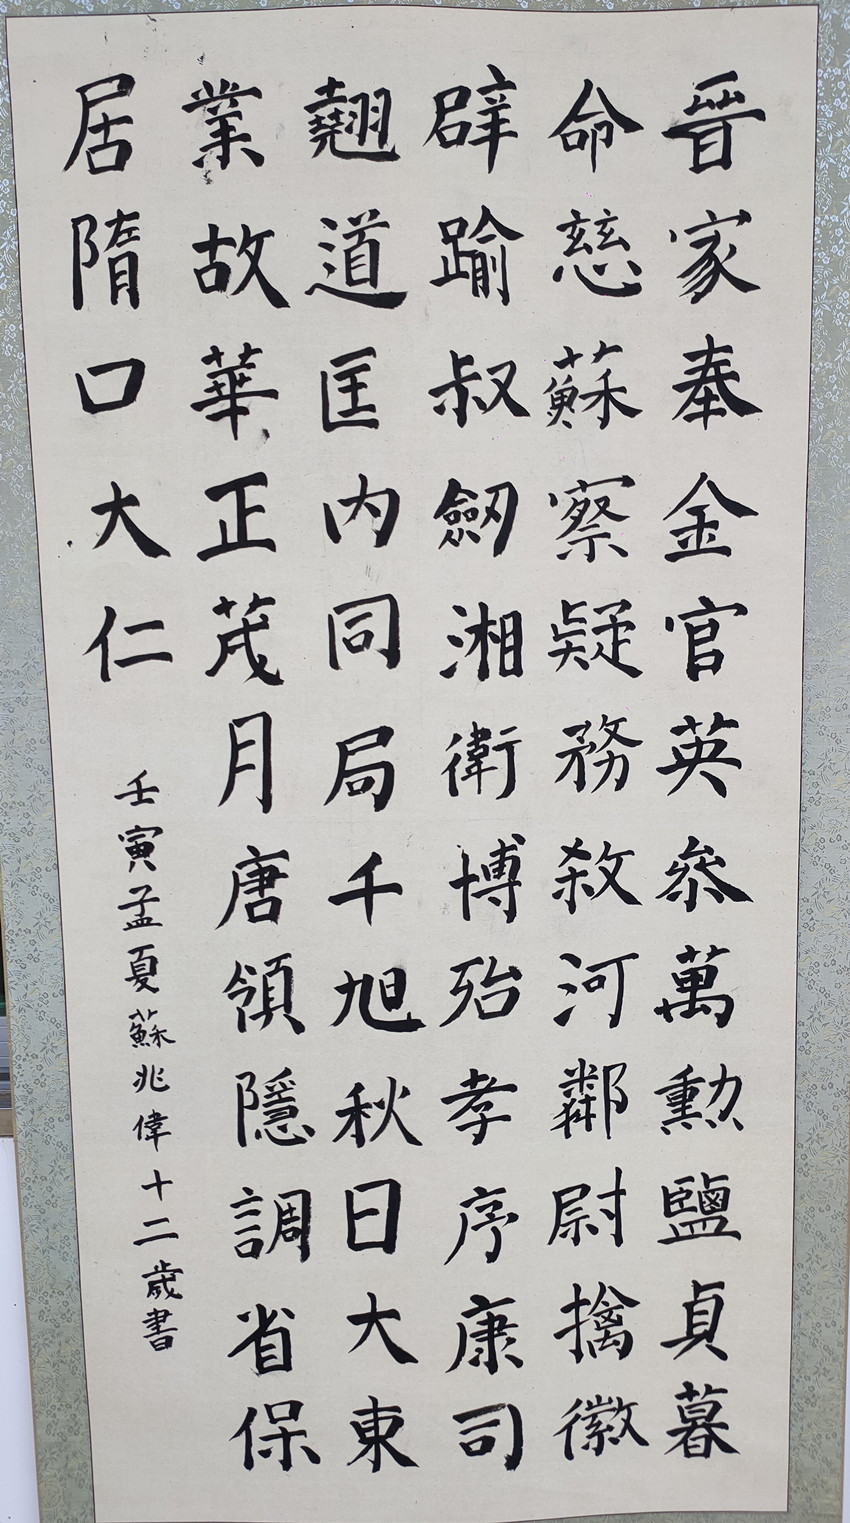 晉家奉金官英叅萬勳鹽貞暮
命慈蘇察疑務敘河鄰尉擒徽
辟踰叔劒湘衛博殆孝序康司
翹道匡內同局千旭秋日大東
業故華正茂月唐領隱調省保
居隋口大仁
壬寅孟夏蘇兆偉十二歲書